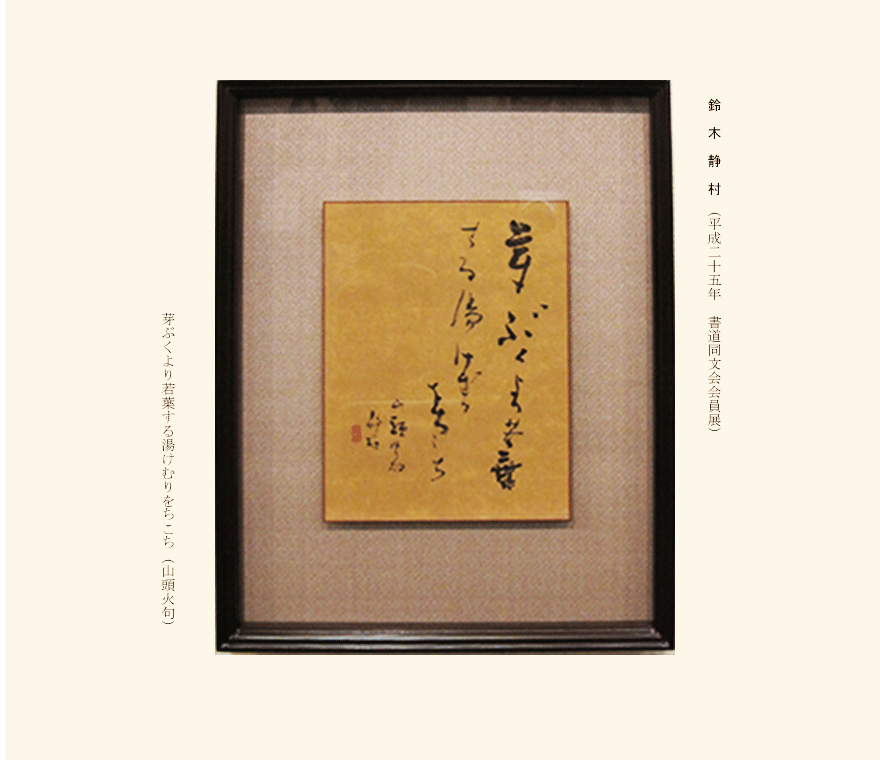 鈴木静村（平成二十五年　書道同文会会員展）
芽ぶくより若葉
する湯けむり
をちこち
山頭火句
静村
芽ぶくより若葉する湯けむりをちこち（山頭火句）